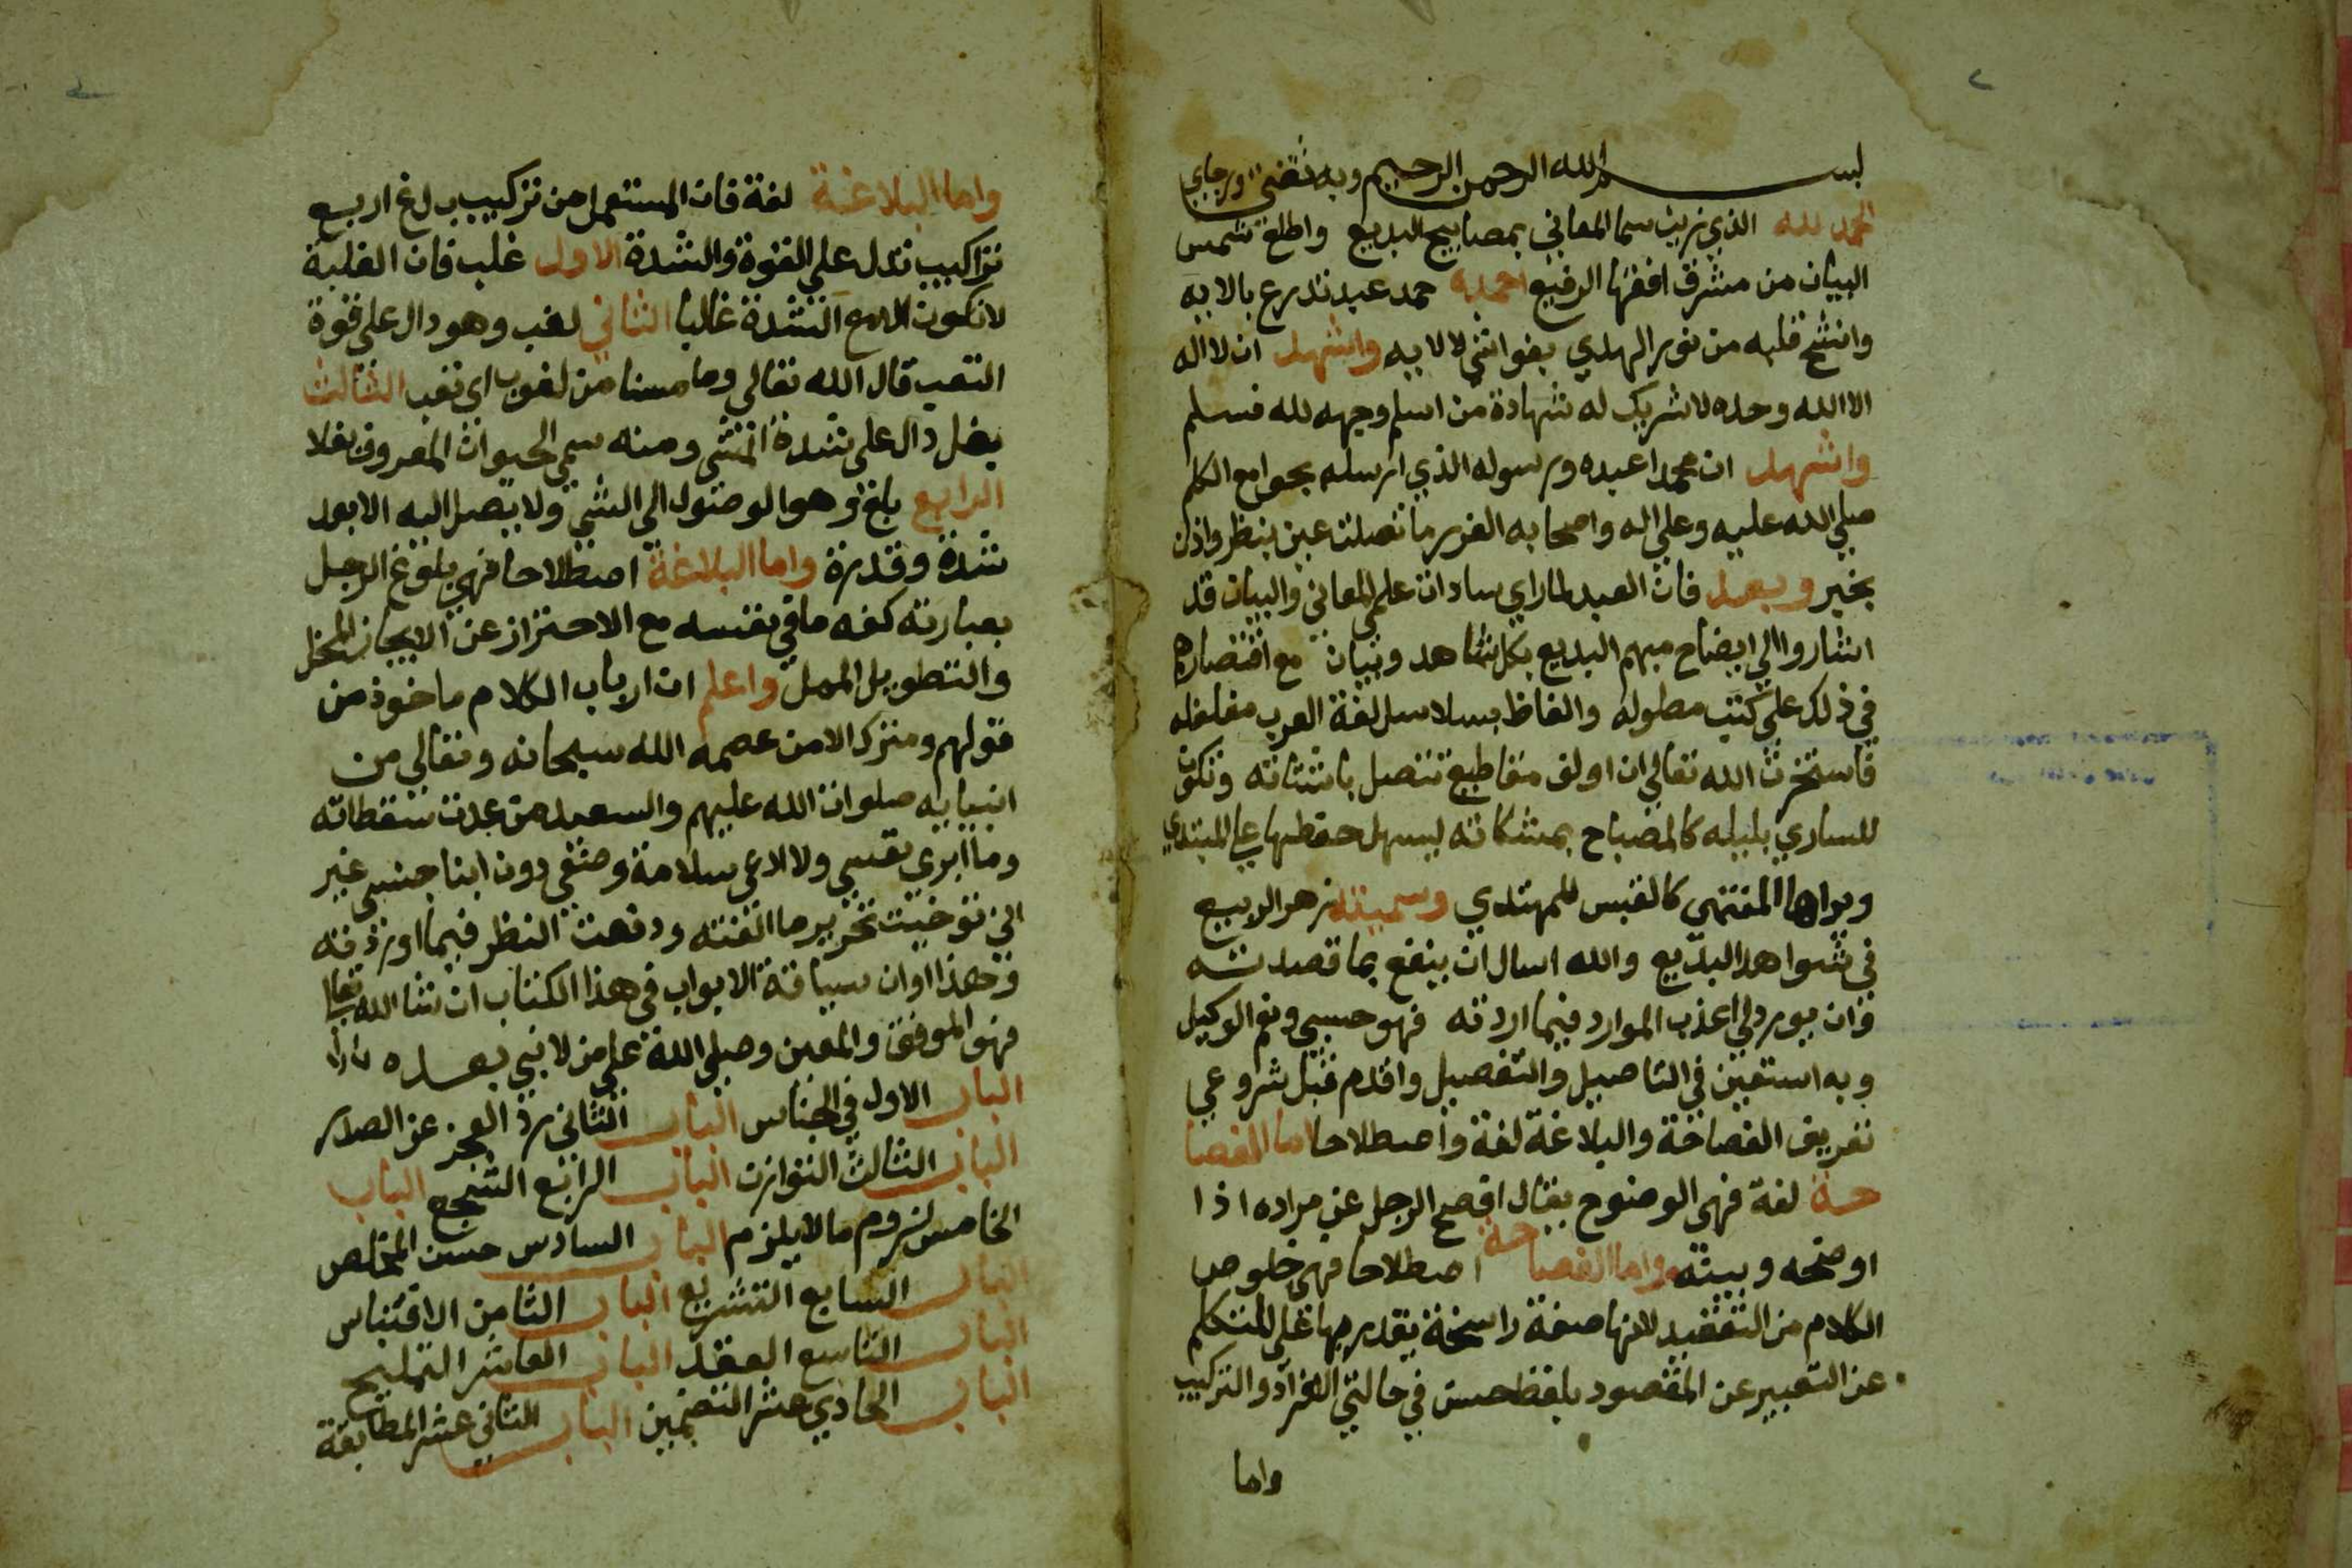 بسم الله الرحمن الرحيم وبه ثقتي ورجاي
الحمد لله الذي زين سما المعاني بمصابيح البديع واطلع شمس
البيان من مشرق افقها الرفيع احمده حمد عبد تدرع بالايه
واتشح قلبه من نور الهدي بغواشي لالايه واشهد ان لا اله
الا الله وحده لا شريك له شهادة من اسلم وجهه لله فسلم
واشهد ان محمدا عبده ورسوله الذي ارسله بجوامع الكلم
صلي الله عليه وعلي اله واصحابه الغرر ما عين بنظر واذن
بخبر وبعد فان العبد لما راي سادات علم المعاني والبيان قد
اشاروا الي ايضاح مبهم البديع بكل شاهد وتبيان مع اقتصارهم
في ذلك علي كتب مطوله والفاظ بسلاسل لغة العرب مغلغله
فاستخرت الله تعالي ان اولف مقاطيع تتصل باشتاته وتكون
للساري بليله كالمصباح بمشكاته ليسهل حفظها علي المبتدي
ويراها المنتهي كالقبس للمهتدي وسميته زهر الربيع
في شواهد البديع والله اسال ان ينفع بما قصدته
وان يورد لي اعذب الموارد فيما اردته فهو حسبي ونعم الوكيل
وبه استعين في التاصيل والتفصيل واقدم قبل شروعي
تعريف الفصاحة والبلاغة لغة واصطلاحا اما الفصا
حة لغة فهي الوضوح يقال افصح الرجل عن مراده اذا
اوضحه وبينه واما الفصاحة اصطلاحا فهي خلوص
الكلام من التعقيد لانها صفة راسخة يقدر بها علي المتكلم
عن التعبير عن المقصود بلفظ حسن في حالتي الافراد والتركيب
واما
واما البلاغة لغة فان المستعمل من تركيب بلغ اربع
تراكيب تدل علي القوة والشدة الاول غلب فان الغلبة
لا تكون الا مع الشدة غالبا الثاني لغب وهو دال علي قوة
التعب قال الله تعالي وما مسنا من لغوب اي تعب الثالث
بغل دال علي شدة المشي ومنه سمي الحيوان المعروف بغلا
الرابع بلغ وهو الوصول الي الشي ولا يصل اليه الا بعد
شدة وقدرة واما البلاغة اصطلاحا فهي بلوغ الرجل
بعبارته كنه ما في نفسه مع الاحتراز عن الايجاز المخل
والتطويل الممل واعلم ان ارباب الكلام ماخوذ من
قولهم ومترك الا من عصمه الله سبحانه وتعالي من
انبيايه صلوات الله عليهم والسعيد من عدت سقطاته
وما ابري نفسي ولا ادعي سلامة وصفي دون ابنا جنسي غير
اني توخيت تحرير ما الفته ودققت النظر فيما اوردته
وهذا اوان سياقة الابواب في هذا الكتاب ان شا الله تعالي
فهو الموفق والمعين وصلي الله علي من لا نبي بعده
الباب الاول في الجناس الباب الثاني رد العجز عن الصدر
الباب الثالث التوازن الباب الرابع التسجيع الباب
الخامس لزوم ما لا يلزم الباب السادس حسن المخلص
الباب السابع التشريع الباب الثامن الاقتباس
الباب التاسع العقد الباب العاشر التمليح
الباب الحادي عشر التضمين الباب الثاني عشر المطابقة